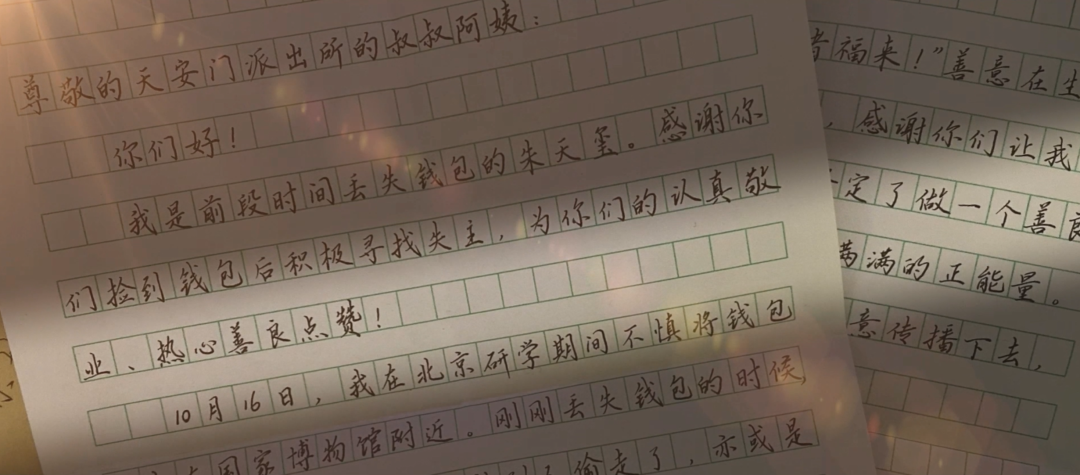 尊敬的天安门派出所的叔叔阿姨：
你们好！
我是前段时间丢失钱包的朱天玺。感谢你
们捡到钱包后积极寻找失主，为你们的认真敬
业、热心善良点赞！
10月16日，我在北京研学期间不慎将钱包
国家博物馆附近。刚刚丢失钱包的时候，
偷走了，亦或是
福来！”善意在生
，感谢你们让我
定了做一个善良
满满的正能量。
意传播下去，